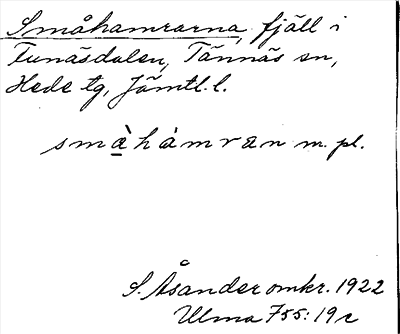 Småhamrarna, fjäll i
Funäsdalen, Tännäs sn,
Hede tg, Jämtl. l.
småhàmran m. pl.
S. Åsander omkr. 1922
Ulma 755:19c